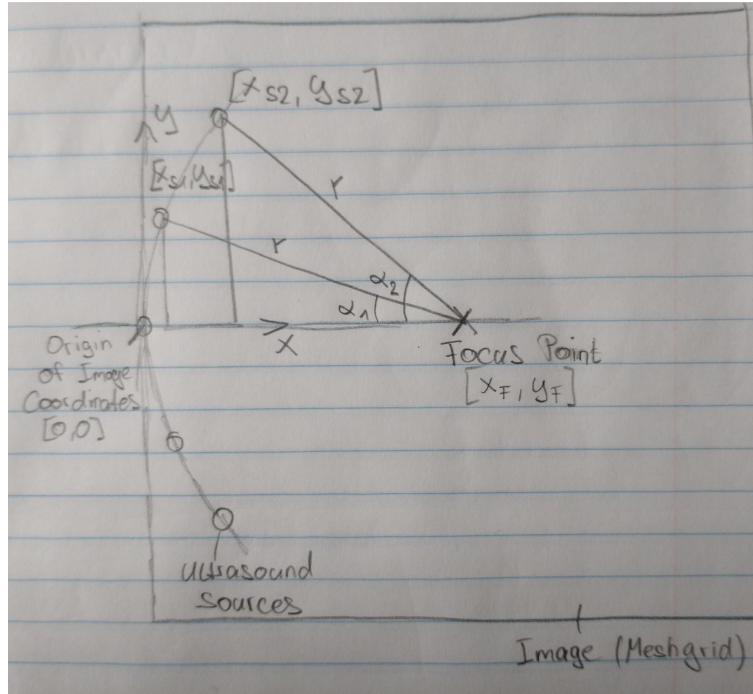 [x_S2, y_S2]
y
[x_S1, y_S1]
r
r
α_2
α_1
x
Origin
of Image
Coordinates
[0,0]
Focus Point
[x_F, y_F]
Ultrasound
sources
Image (Meshgrid)